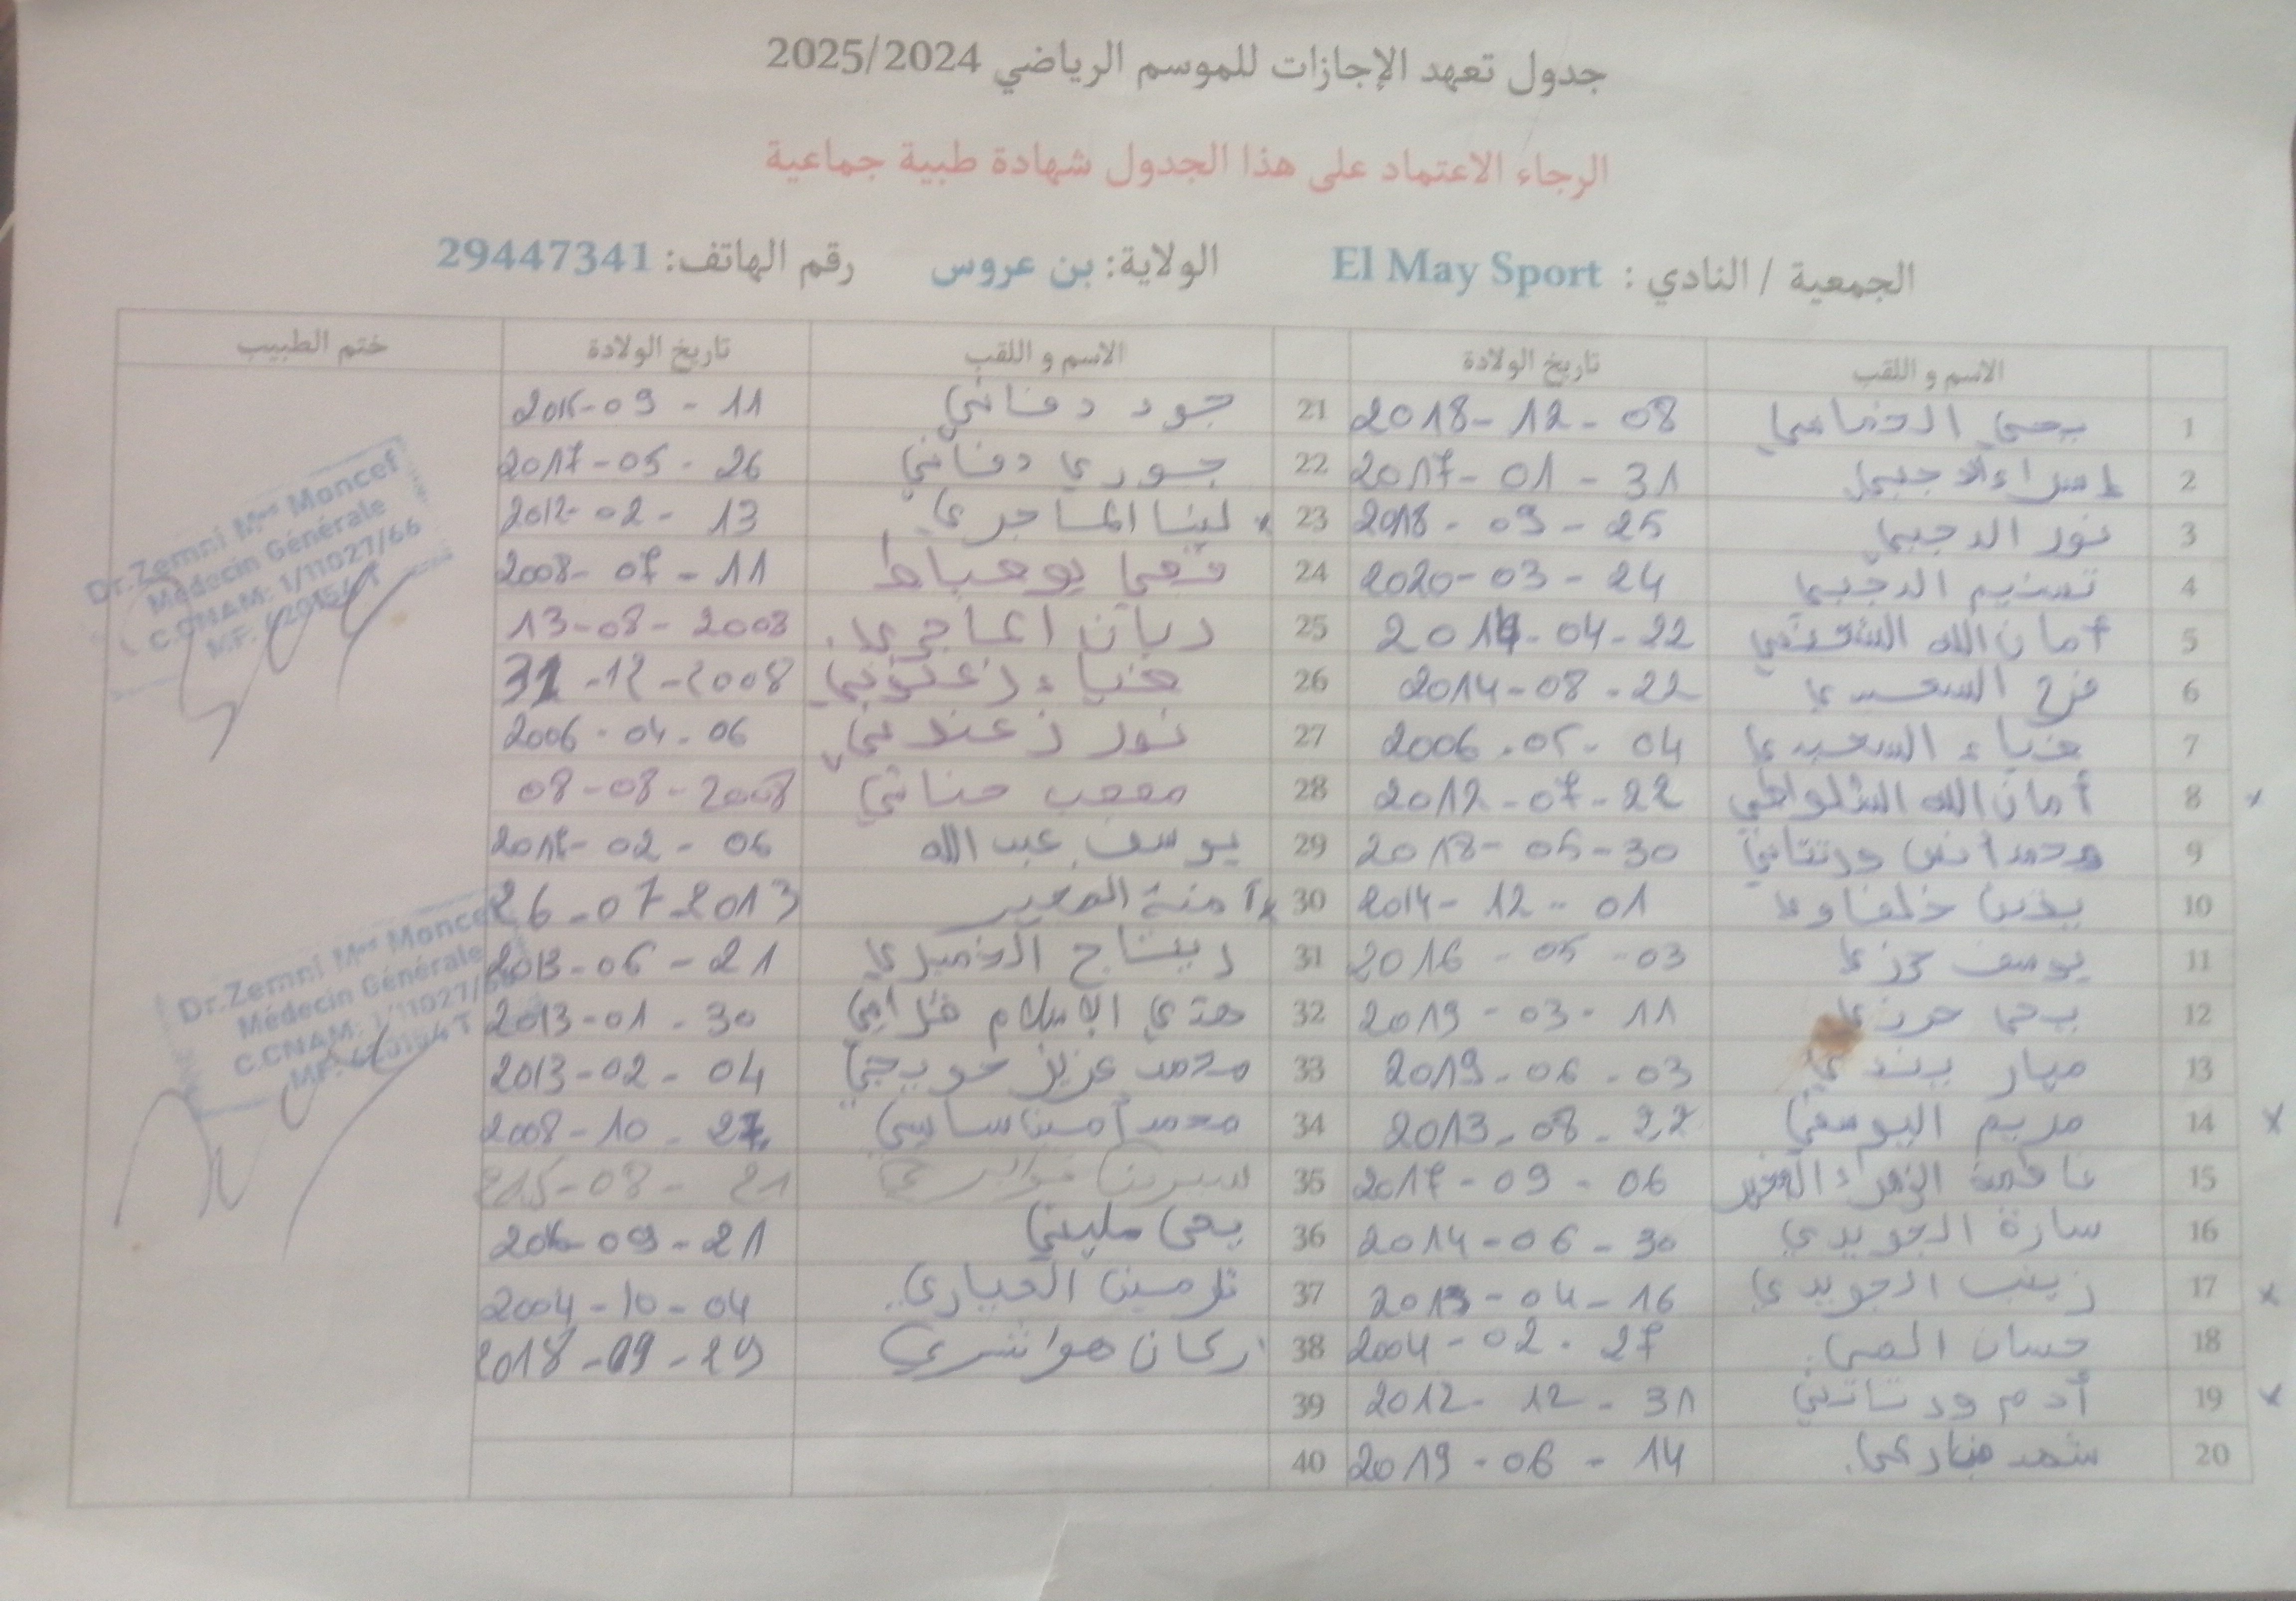 جدول تعهد الإجازات للموسم الرياضي 2025/2024
الرجاء الاعتماد على هذا الجدول شهادة طبية جماعية
الجمعية / النادي : El May Sport الولاية: بن عروس رقم الهاتف: 29447341
الاسم و اللقب تاريخ الولادة الاسم و اللقب تاريخ الولادة ختم الطبيب
1 يحيى 2018-12-08 21 جود دفاني 11 - 09
2 2017-01-31 22 جوري دفاني 2017-05-26
3 نور الدجبي 2018-09-25 23 لينا الماجري 2012-02-13
4 تسنيم الدجبي 2020-03-24 24 2008-07-11
5 أمان الله 2014-04-22 25 ريان الماجري 13-08-2008
6 فرح السعيدي 2014-08-22 26 ضياء زغدودي 31-12-2008
7 ضياء السعيدي 2006-05-04 27 نور 2006-04-06
8 أمان الله الشلواطي 2012-07-22 28 مصعب مناني 08-08-2008
9 محمد أنس ورتتاني 2018-05-30 29 يوسف عبد الله 02 - 06
10 خلفاوي 2014-12-01 30 آمنة الصغير 26-07-2013
11 يوسف حرزي 2016-05-03 31 ريتاج الخميري 2013-06-21
12 يحي حرزي 2019-03-11 32 الإسلام 2013-01-30
13 ميار 2019-06-03 33 محمد عزيز 2013-02-04
14 مريم اليوسفي 2013-08-22 34 محمد أمين ساسي 2008-10-27
15 فاطمة الزهراء الصغير 2017-09-06 35 سيرين 08 - 21
16 سارة الجويدي 2014-06-30 36 يحي مليتي 09-21
17 زينب الجويدي 2013-04-16 37 نرمين العياري 2004-10-04
18 حسان 2004-02-27 38 هواشري 2018-09-29
19 أدم ورتاتني 2012-12-31 39
20 شهد مباركي 2019-06-14 40
Dr.Zemni Med Moncef
Médecin Générale
C.CNAM: 1/11027/66
Dr.Zemni Med Moncef
Médecin Générale
C.CNAM: 1/11027/66